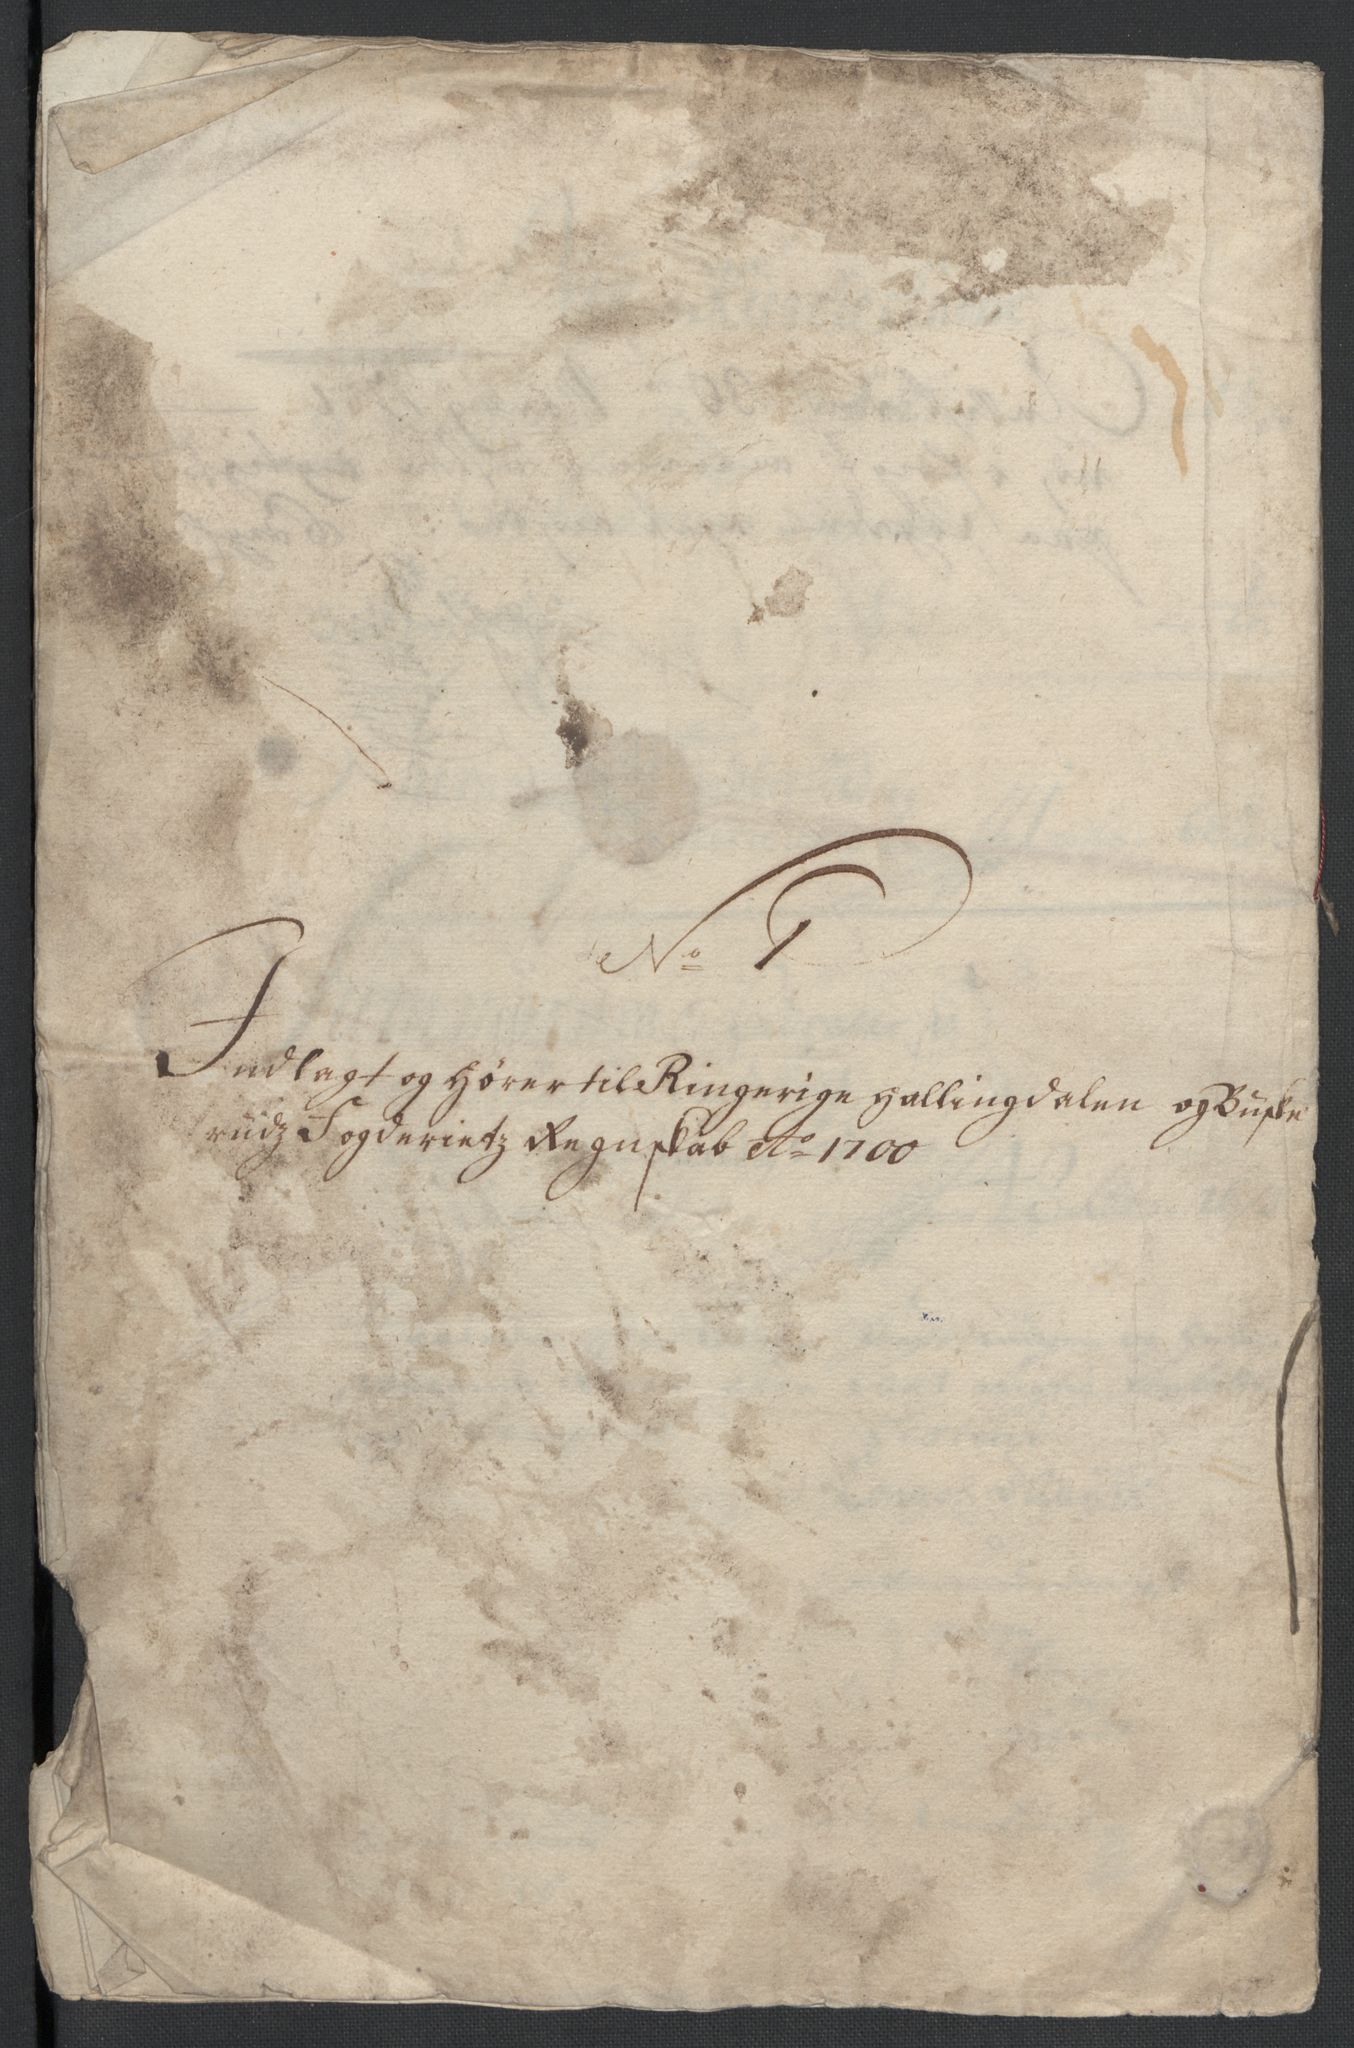 No 1
Indlagt og Hører til Ringerige Hallingdalen og Buske
rudz Fogderietz Regnskab Ao 1700